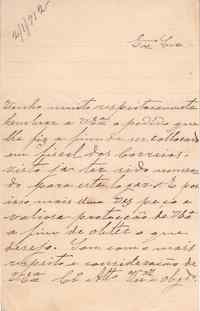 2/1/912
Exmo Snr
Tenho muito respeitosamente
lembrar a V Exa o pedido que
lhe fiz a fim de ser collocado
em fiscal dos Correios,
visto ja ter sido nomea
do para este logar. E por
isso mais uma vez peço a
valiosa protecção de V Exa
a fim de obter o que
desejo. Sou com o mais
respeito e consideração de
V Exa Cr Atto Vor e Obgdo